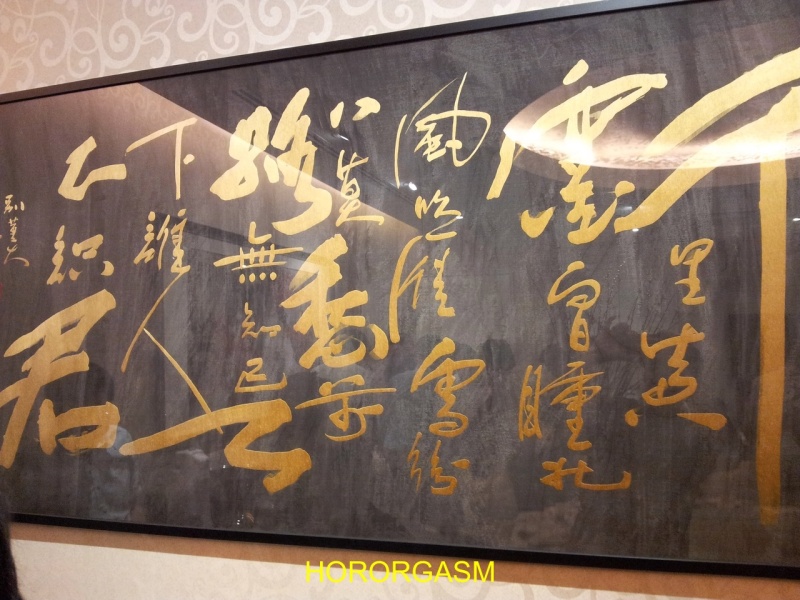 千
里黃
雲白日曛北
風吹雁雪紛
〻莫愁前
路無知己天
下誰人
不識君
别董大
HORORGASM